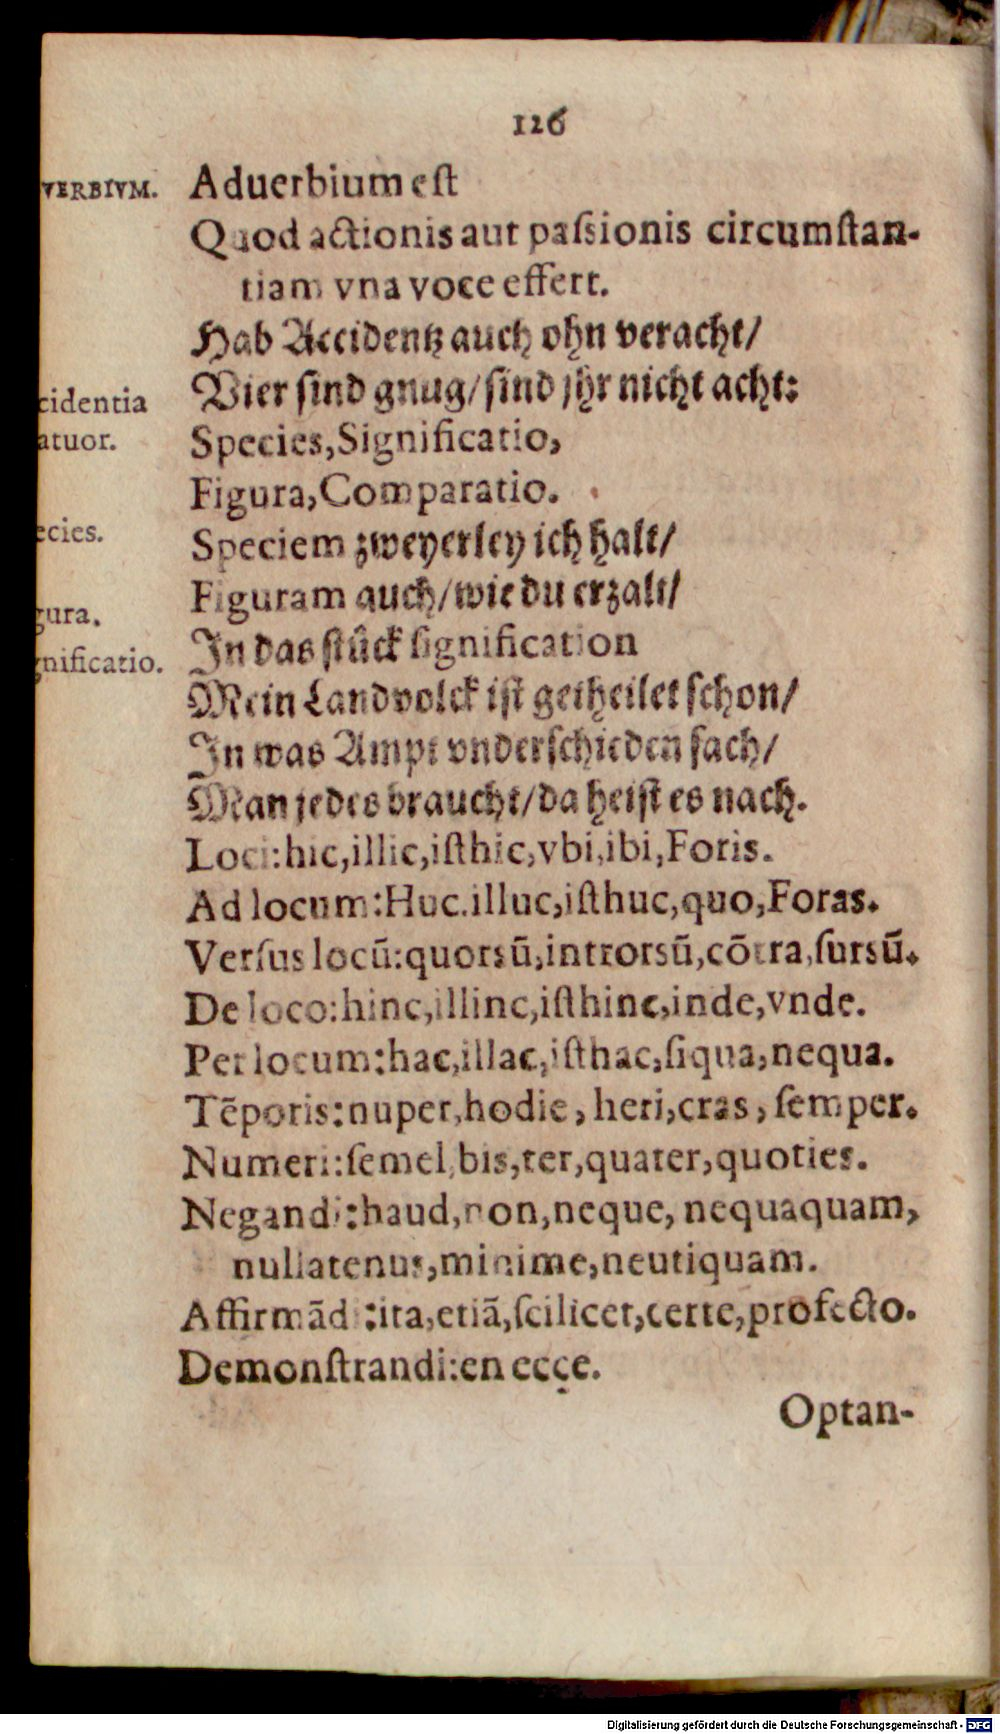 126
VERBIVM.
Aduerbium est
Quod actionis aut paſsionis circumſtan-
tiam vna voce effert.
Hab Accidentz auch ohn veracht/
cidentia
Vier ſind gnug/ſind jhr nicht acht:
atuor.
Species,Significatio,
Figura,Comparatio.
ecies.
Speciem zweyerley ich halt/
gura.
Figuram auch/wie du erzalt/
gnificatio.
In das ſtuͤck ſignification
Mein Landvolck iſt getheilet ſchon/
In was Ampt vnderſchieden ſach/
Man jedes braucht/da heiſt es nach.
Loci:hic,illic,iſthic,vbi,ibi,Foris.
Ad locum:Huc.illuc,iſthuc,quo,Foras.
Verſus locū:quorsū,introrsū,cōtra,ſursū.
De loco:hinc,illinc,iſthinc,inde,vnde.
Per locum:hac,illac,iſthac,ſiqua,nequa.
Tēporis:nuper,hodie, heri,cras, ſemper.
Numeri:ſemel,bis,ter,quater,quoties.
Negandi:haud,non,neque, nequaquam,
nullatenus,minime,neutiquam.
Affirmād :ita,etiā,ſcilicet,certe,profecto.
Demonſtrandi:en ecce.
Optan-
Digitalisierung gefördert durch die Deutsche Forschungsgemeinschaft - DFG